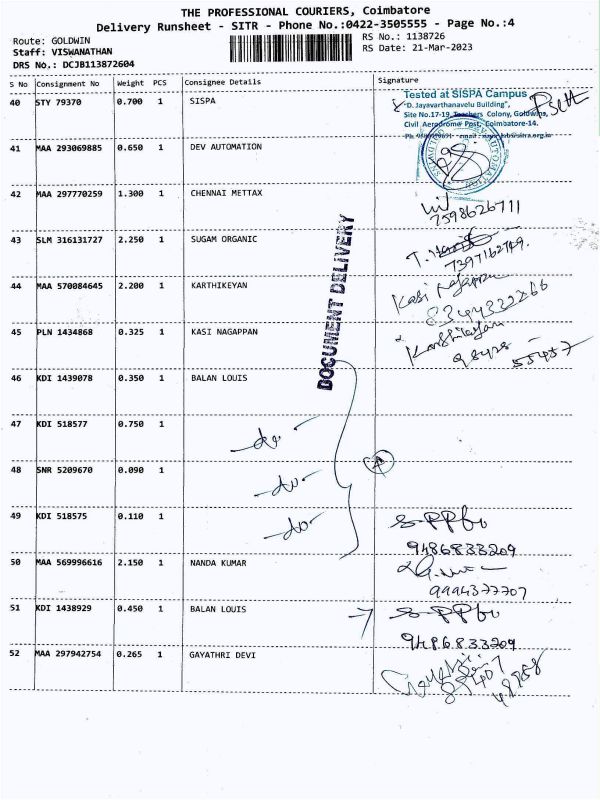 THE PROFESSIONAL COURIERS, Coimbatore
Delivery Runsheet - SITR - Phone No.:0422-3505555 - Page No.:4
Route: GOLDWIN
Staff: VISWANATHAN
DRS No.: DCJB113872604
RS No.: 1138726
RS Date: 21-Mar-2023
S No Consignment No Weight PCS Consignee Details Signature
40 STY 79370 0.700 1 SISPA
Tested at SISPA Campus
"D. Jayavarthanavelu Building",
Site No.17-19, Teachers Colony, Goldwins,
Civil Aerodrome Post, Coimbatore-14.
41 MAA 293069885 0.650 1 DEV AUTOMATION
42 MAA 297770259 1.300 1 CHENNAI METTAX
7598626711
43 SLM 316131727 2.250 1 SUGAM ORGANIC
7397162749.
44 MAA 570084645 2.200 1 KARTHIKEYAN
Kasi Nagappan
8344332266
45 PLN 1434868 0.325 1 KASI NAGAPPAN
Karthikeyan
98428 55457
DOCUMENT DELIVERY
46 KDI 1439078 0.350 1 BALAN LOUIS
47 KDI 518577 0.750 1
-do-
48 SNR 5209670 0.090 1
-do-
A
49 KDI 518575 0.110 1
-do-
9486833209
50 MAA 569996616 2.150 1 NANDA KUMAR
9994377707
51 KDI 1438929 0.450 1 BALAN LOUIS
9486833209
52 MAA 297942754 0.265 1 GAYATHRI DEVI